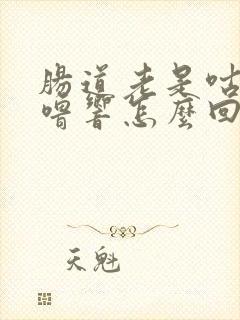 腸道老是咕
嚕響怎麼回
天魁